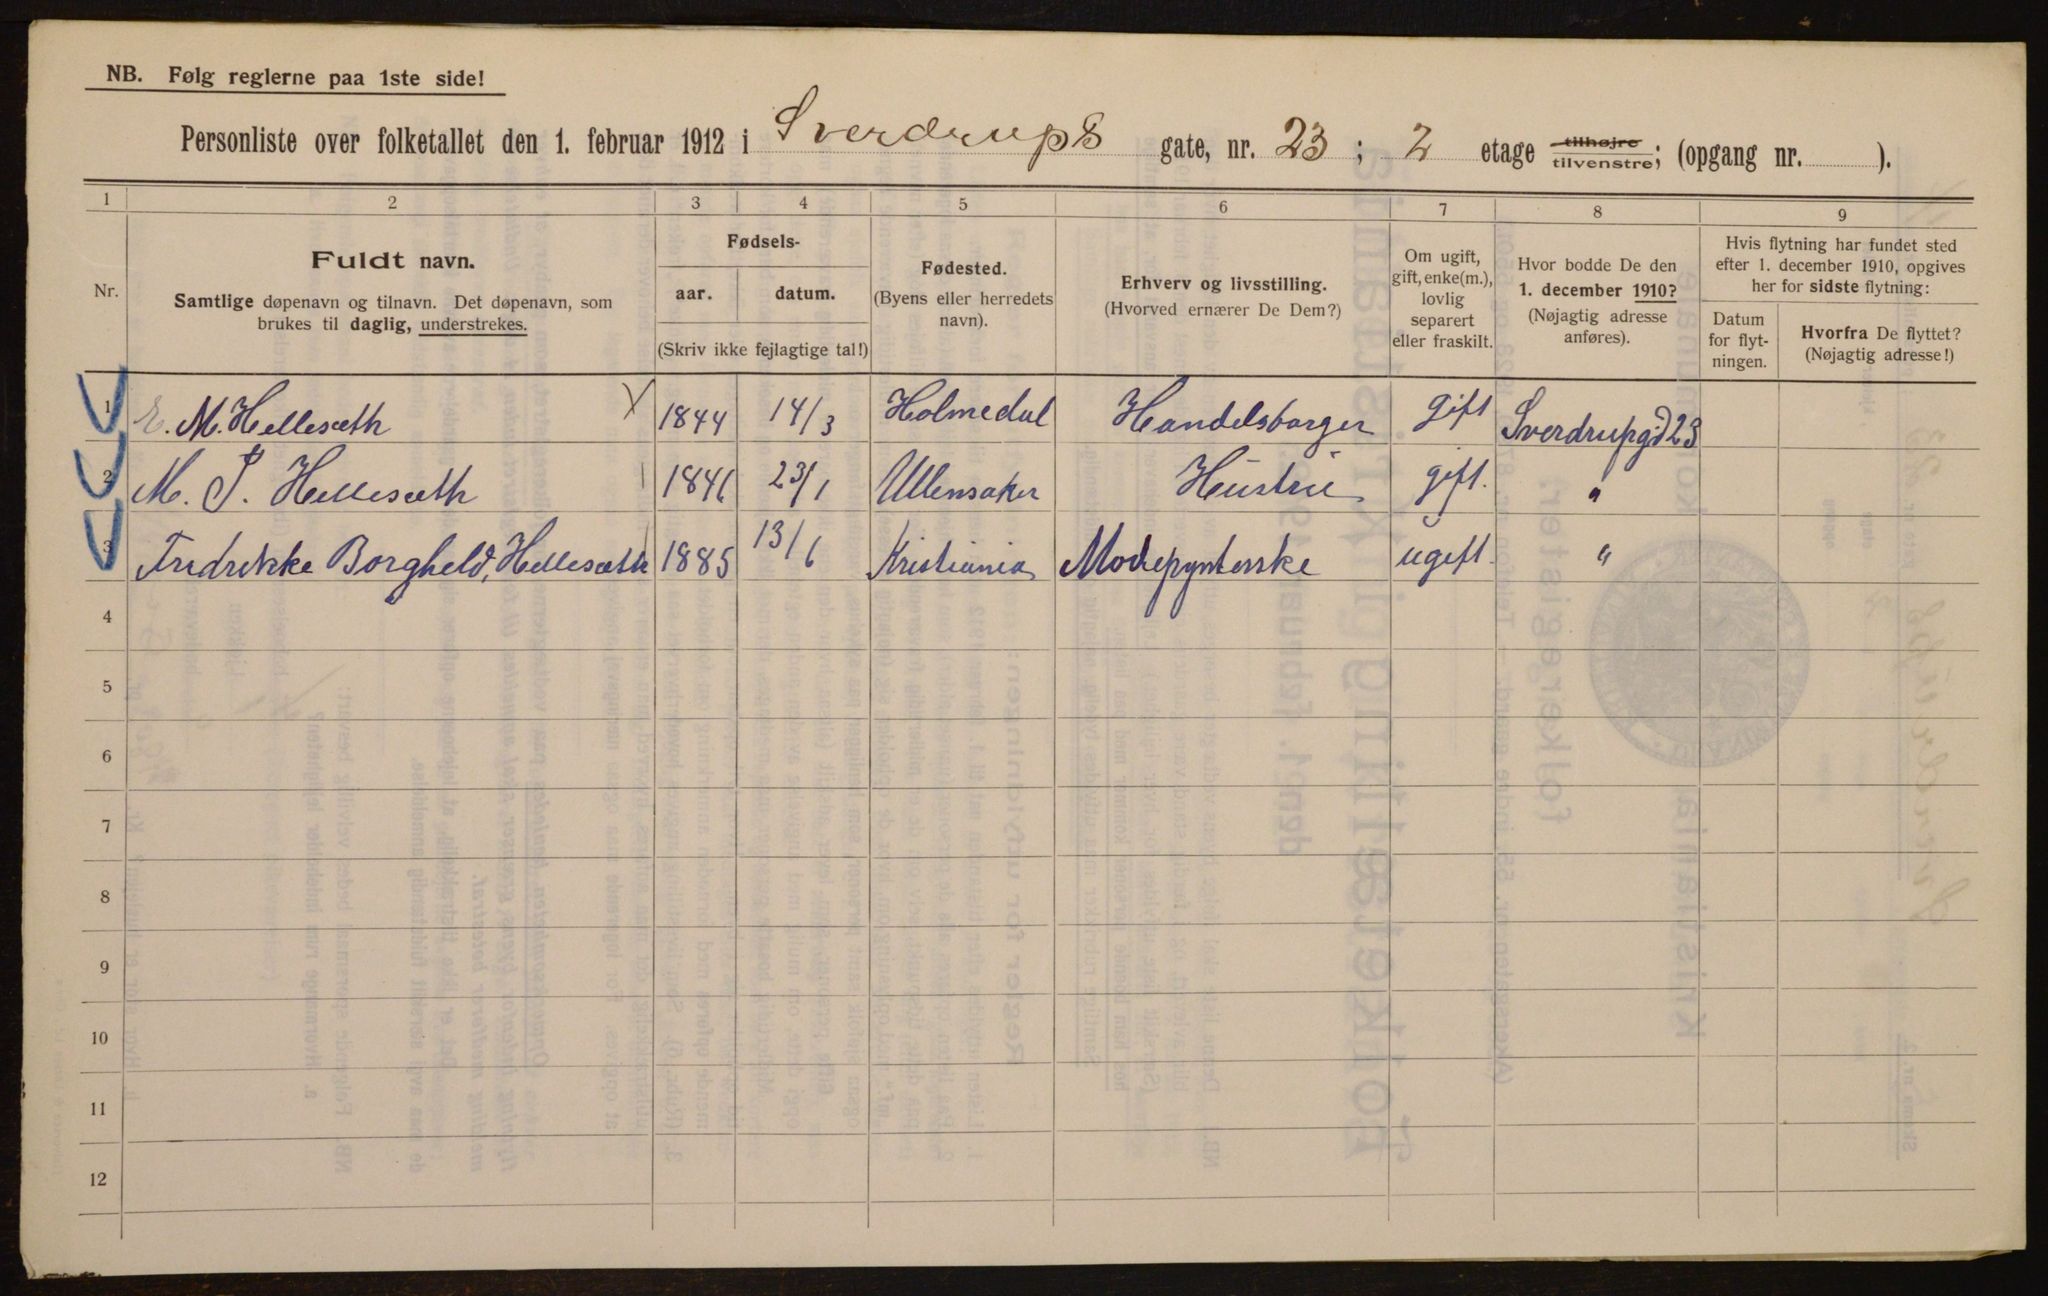 NB. Følg reglerne paa 1ste side!
Personliste over folketallet den 1. februar 1912 i Sverdrups gate, nr. 23; 2 etage tilhøjre tilvenstre; (opgang nr. ).
1 2 3 4 5 6 7 8 9
Nr.
Fuldt navn.
Samtlige døpenavn og tilnavn. Det døpenavn, som
brukes til daglig, understrekes.
Fødsels-
aar. datum.
(Skriv ikke fejlagtige tal!)
Fødested.
(Byens eller herredets
navn).
Erhverv og livsstilling.
(Hvorved ernærer De Dem?)
Om ugift,
gift, enke(m.),
lovlig
separert
eller fraskilt.
Hvor bodde De den
1. december 1910?
(Nøjagtig adresse
anføres).
Hvis flytning har fundet sted
efter 1. december 1910, opgives
her for sidste flytning:
Datum
for flyt-
ningen.
Hvorfra De flyttet?
(Nøjagtig adresse!)
1 E. M. Hellesæth 1844 14/3 Holmedal Handelsborger gift Sverdrupgd 23
2 M. P. Hellesæth 1846 23/1 Ullensaker Hustru gift. "
3 Fredrikke Borghild, Hellesæth 1885 13/6 Kristiania Modepynterske ugift "
4
5
6
7
8
9
10
11
12